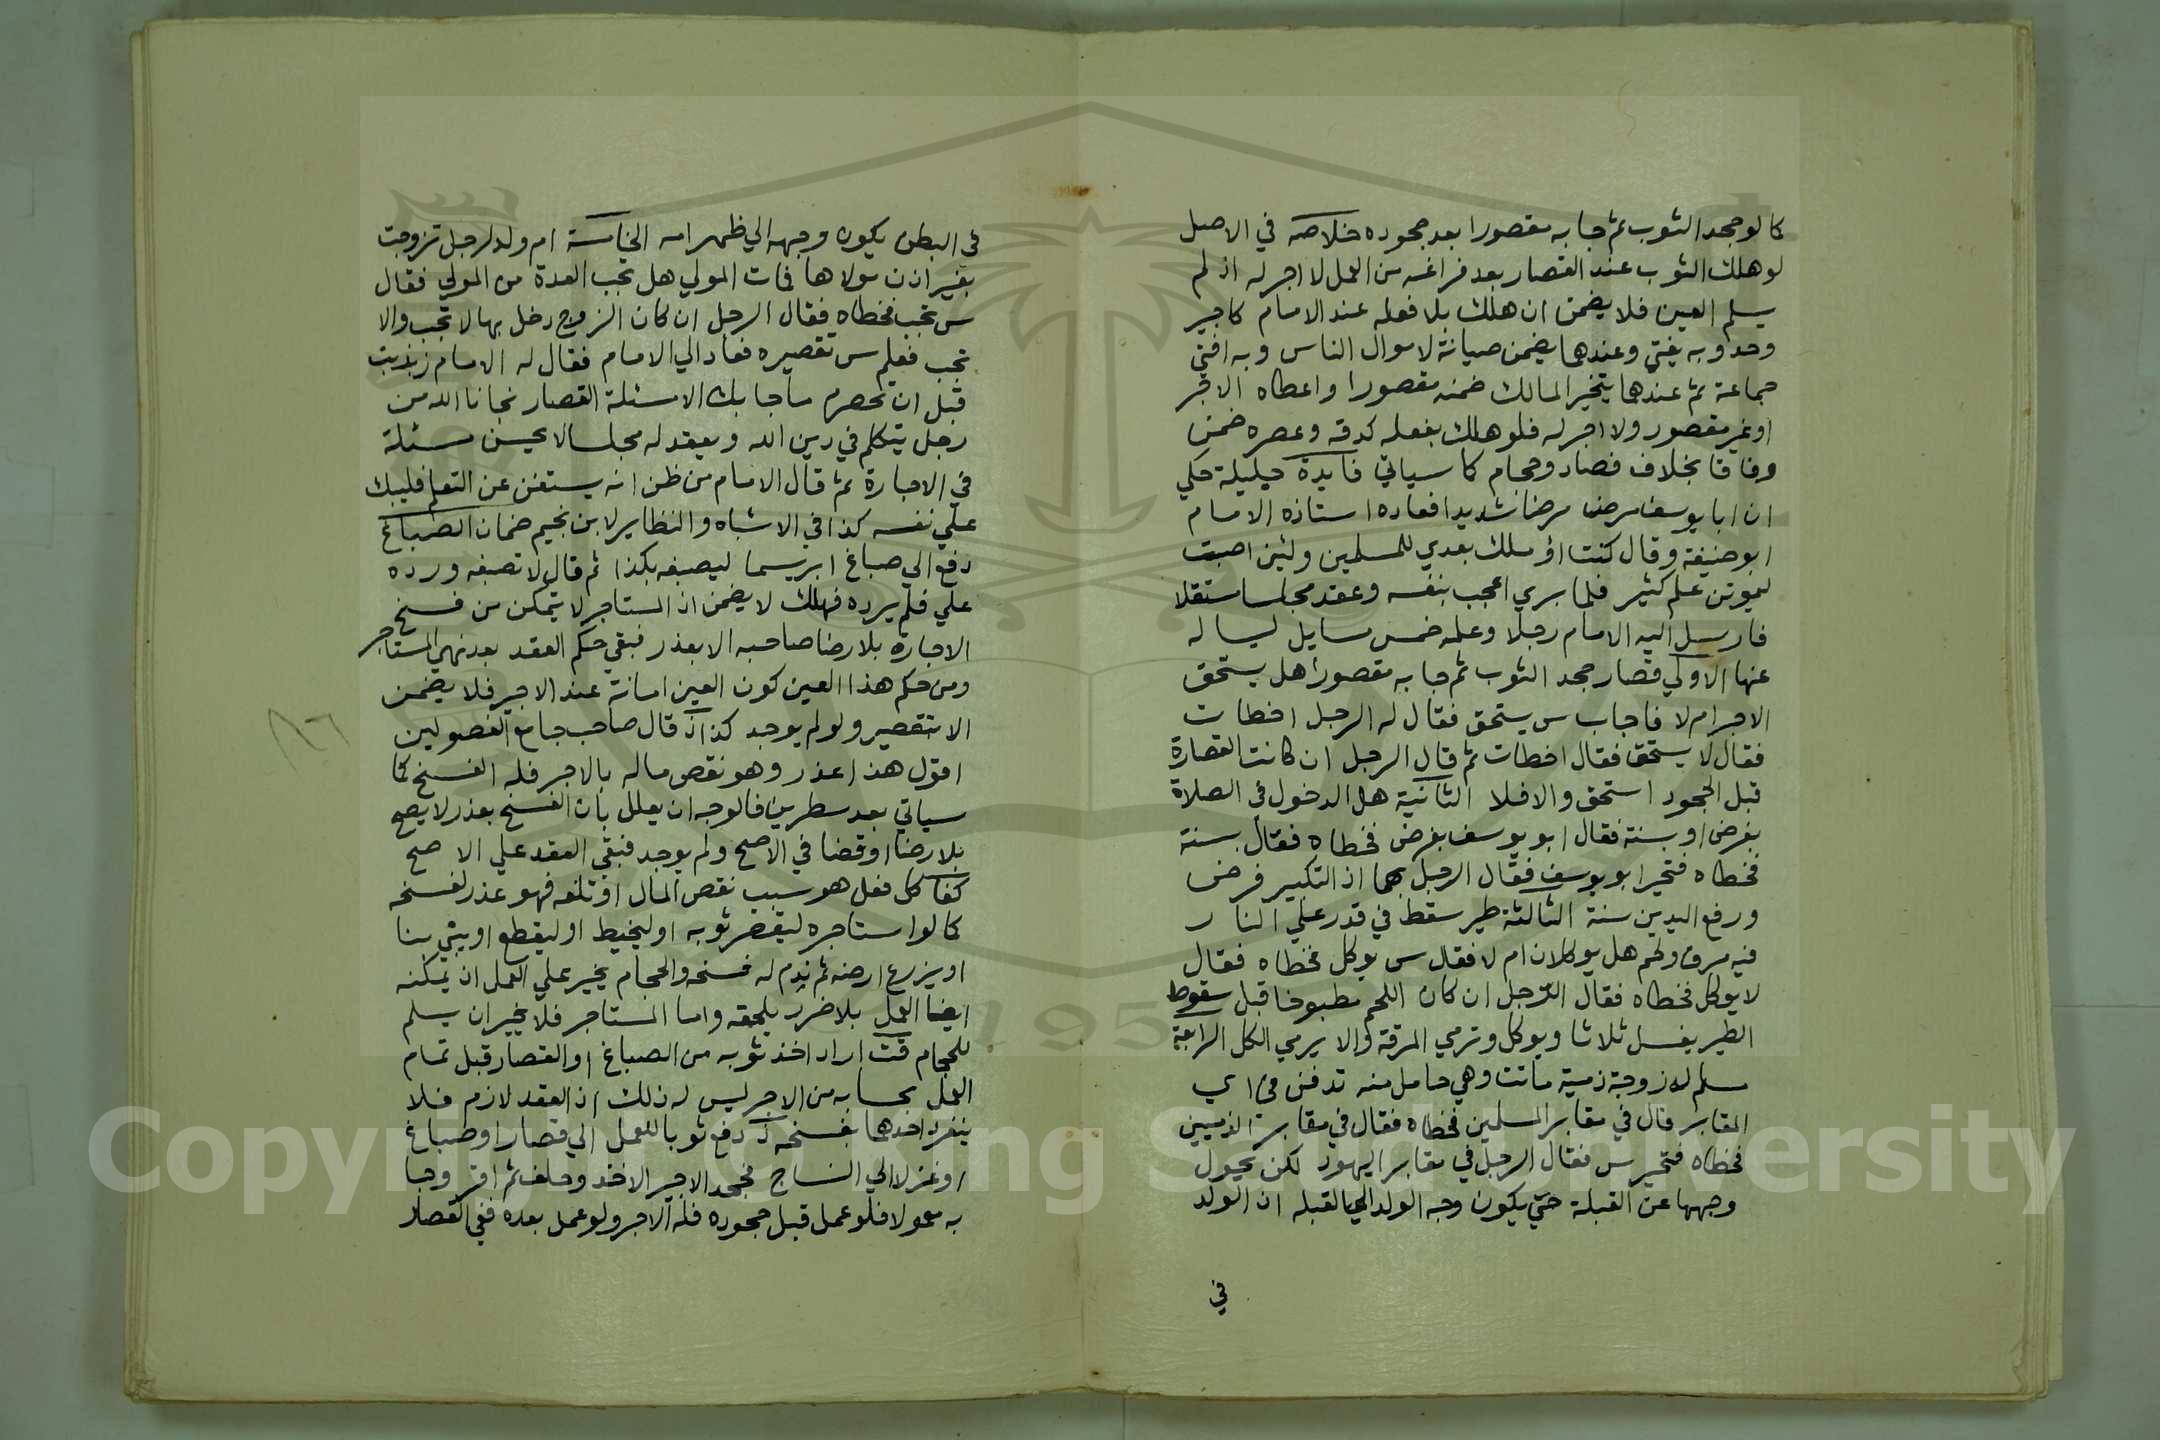 كالو جحد الثوب ثم جا به مقصورا بعد جحوده خلاصه في الاصل
لو هلك الثوب عند القصار بعد فراغه من العمل لا اجر له اذ لم
يسلم العين فلا يضمن ان هلك بلا فعله عند الامام كاجير
وحد وبه يفتي وعندهما يضمن صيانة لاموال الناس وبه افتي
جماعة ثم عندهما يتخير المالك ضمنه مقصورا واعطاه الاجر
او غير مقصور ولا اجر له فلو هلك بفعله كدقه وعصره ضمن
وفاقا بخلاف فصاد وحجام كما سياتي فايدة جليلة حكي
ان ابا يوسف مرض مرضا شديدا فعاده استاذه الامام
ابو حنيفة وقال كنت اؤملك بعدي للمسلمين ولئن اصبت
ليموتن علم كثير فلما بري اعجب بنفسه وعقد مجلسا مستقلا
فارسل اليه الامام رجلا وعلمه خمس مسايل ليساله
عنها الاولي قصار جحد الثوب ثم جا به مقصورا هل يستحق
الاجر ام لا فاجاب س يستحق فقال له الرجل اخطات
فقال لا يستحق فقال اخطات ثم قال الرجل ان كانت القصارة
قبل الجحود استحق والا فلا الثانية هل الدخول في الصلاة
بفرض او بسنة فقال ابو يوسف بفرض فخطاه فقال بسنة
فخطاه فتحير ابو يوسف فقال الرجل بهما اذ التكبير فرض
ورفع اليدين سنة الثالثة طير سقط في قدر علي النار
فيه مرق ولحم هل يوكلان ام لا فقال س يوكل فخطاه فقال
لا يوكل فخطاه فقال الرجل ان كان اللحم مطبوخا قبل سقوط
الطير يغسل ثلاثا ويوكل وترمي المرقة والا يرمي الكل الرابعة
مسلم له زوجة ذمية ماتت وهي حامل منه تدفن في اي
المقابر قال في مقابر المسلمين فخطاه فقال في مقابر الذميين
فخطاه فتحير س فقال الرجل في مقابر اليهود لكن يحول
وجهها عن القبلة حتي يكون وجه الولد الي القبله ان الولد
في
في البطن يكون وجهه الي ظهر امه الخامسة ام ولد لرجل تزوجت
بغير اذن مولاها فمات المولي هل تجب العدة من المولي فقال
س تجب فخطاه فقال الرجل ان كان الزوج دخل بها لا تجب والا
تجب فعلم س تقصيره فعاد الي الامام فقال له الامام زببت
قبل ان تحصرم ما جا بك الا مسئلة القصار نجانا الله من
رجل يتكلم في دين الله ويعقد له مجلسا لا يحسن مسئلة
في الاجارة ثم قال الامام من ظن انه يستغني عن التعلم فليبك
علي نفسه كذا في الاشباه والنظاير لابن نجيم ضمان الصباغ
دفع الي صباغ ابريسما ليصبغه بكذا ثم قال لا تصبغه ورده
علي فلم يرده فهلك لا يضمن اذ المستاجر لا يتمكن من فسخ
الاجارة بلا رضا صاحبه الا بعذر فبقي حكم العقد بعد نهي المستاجر
ومن حكم هذا العين كون العين امانة عند الاجير فلا يضمن
الا بتقصير ولم يوجد كذا قال صاحب جامع الفصولين
اقول هذا عذر وهو نقص ماله بالاجر فله الفسخ كما
سياتي بعد سطرين فالوجه ان يعلل بان الفسخ بعذر لا يصح
بلا رضا او قضا في الاصح ولم يوجد فبقي العقد علي الاصح
كفا كل فعل هو سبب نقص المال او تلفه فهو عذر لفسخه
كما لو استاجره ليقصر ثوبه او ليخيط او ليقطع او يبني بنا
او يزرع ارضه ثم ندم له فسخه والحجام يخير علي العمل ان يمكنه
ايضا العمل بلا ضرر يلحقه واما المستاجر فلا يخير ان يسلم
للحجام قت اراد اخذ ثوبه من الصباغ او القصار قبل تمام
العمل بحسابه من الاجر ليس له ذلك اذ العقد لازم فلا
ينفرد احدهما بفسخه ذ دفع ثوبا للعمل الي قصار او صباغ
او غزلا الي النساج فجحد الاجير الاخذ وحلف ثم اقر وجا
به معمولا فلو عمل قبل جحوده فله الاجر ولو عمل بعده ففي القصار
Copyright © King Saud University